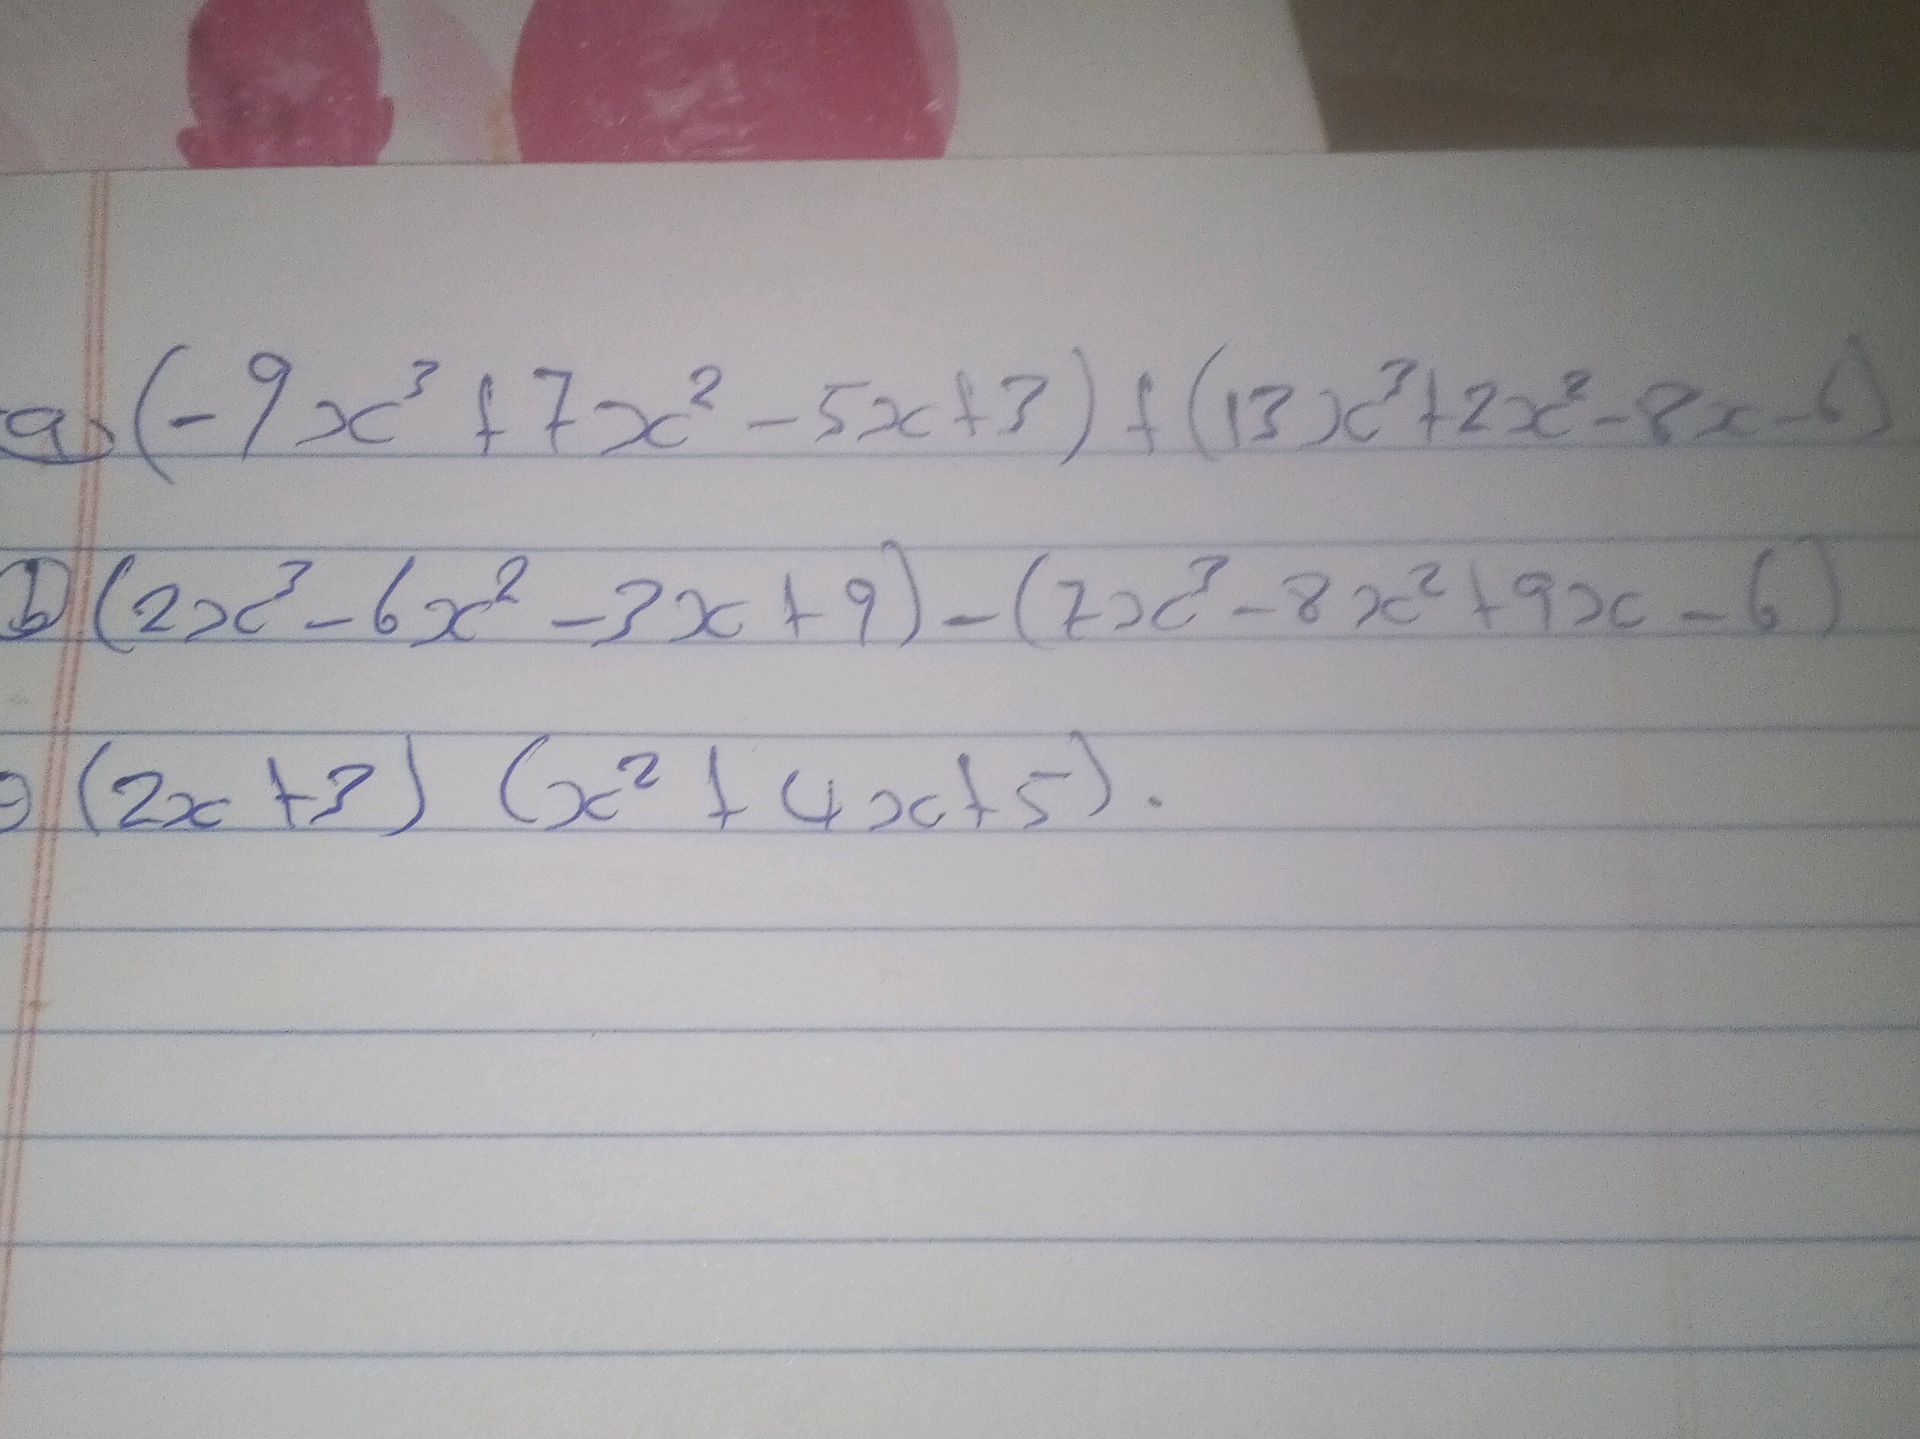 a) (-9x³ + 7x² - 5x + 3) + (13x³ + 2x² - 8x - 6)
b) (2x³ - 6x² - 3x + 9) - (7x³ - 8x² + 9x - 6)
c) (2x + 3) (x² + 4x + 5).